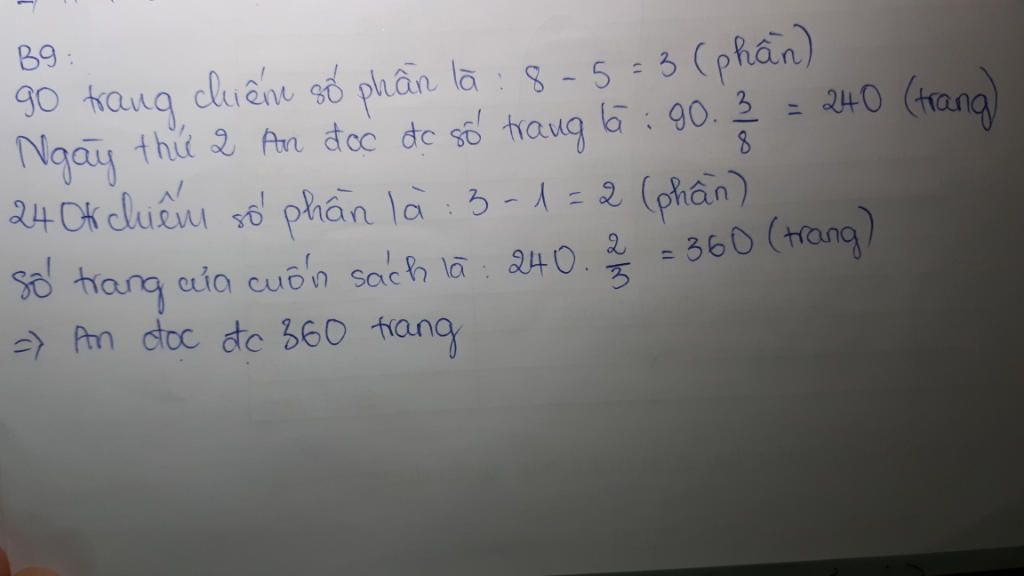 B9:
90 trang chiếm số phần là : 8 - 5 = 3 (phần)
Ngày thứ 2 An đọc đc số trang là : 90 . 3/8 = 240 (trang)
240tr chiếm số phần là : 3 - 1 = 2 (phần)
Số trang của cuốn sách là : 240 . 2/3 = 360 (trang)
=> An đọc đc 360 trang